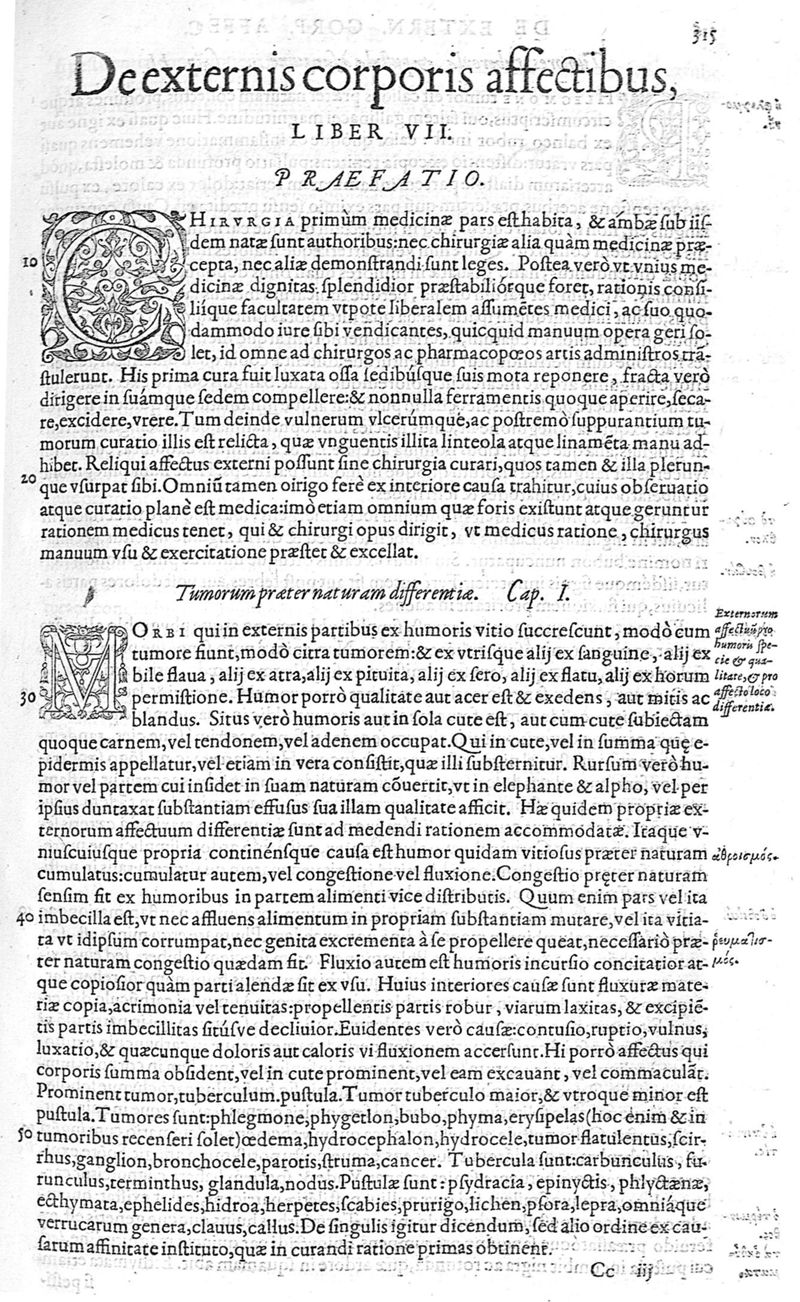 315
De externis corporis affectibus,
LIBER VII.
PRAEFATIO.
CHIRVRGIA primùm medicinæ pars est habita, & ambæ sub iis-
dem natæ sunt authoribus: nec chirurgiæ alia quàm medicinæ præ-
10 cepta, nec aliæ demonstrandi sunt leges. Postea verò vt vnius me-
dicinæ dignitas splendidior præstabiliórque foret, rationis consi-
liíque facultatem vtpote liberalem assumẽtes medici, ac suo quo-
dammodo iure sibi vendicantes, quicquid manuum opera geri so-
let, id omne ad chirurgos ac pharmacopœos artis administros trã-
stulerunt. His prima cura fuit luxata ossa sedibúsque suis mota reponere, fracta verò
dirigere in suámque sedem compellere: & nonnulla ferramentis quoque aperire, seca-
re, excidere, vrere. Tum deinde vulnerum vlcerúmque, ac postremò suppurantium tu-
morum curatio illis est relicta, quæ vnguentis illita linteola atque linamẽta manu ad-
hibet. Reliqui affectus externi possunt sine chirurgia curari, quos tamen & illa plerun-
20 que vsurpat sibi. Omniũ tamen origo ferè ex interiore causa trahitur, cuius obseruatio
atque curatio planè est medica: imò etiam omnium quæ foris existunt atque geruntur
rationem medicus tenet, qui & chirurgi opus dirigit, vt medicus ratione, chirurgus
manuum vsu & exercitatione præstet & excellat.
Tumorum præter naturam differentiæ. Cap. I.
MORBI qui in externis partibus ex humoris vitio succrescunt, modò cum
tumore fiunt, modò citra tumorem: & ex vtrisque alij ex sanguine, alij ex
bile flaua, alij ex atra, alij ex pituita, alij ex sero, alij ex flatu, alij ex horum
30 permistione. Humor porrò qualitate aut acer est & exedens, aut mitis ac
blandus. Situs verò humoris aut in sola cute est, aut cum cute subiectam
Externorum
affectuũ pro
humoris spe-
cie & qua-
litate, & pro
affecto loco
differentiæ.
quoque carnem, vel tendonem, vel adenem occupat. Qui in cute, vel in summa quę e-
pidermis appellatur, vel etiam in vera consistit, quæ illi substernitur. Rursum verò hu-
mor vel partem cui insidet in suam naturam cõuertit, vt in elephante & alpho, vel per
ipsius duntaxat substantiam effusus sua illam qualitate afficit. Hæ quidem propriæ ex-
ternorum affectuum differentiæ sunt ad medendi rationem accommodatæ. Itaque v-
niuscuiusque propria continénsque causa est humor quidam vitiosus præter naturam
ἀθροισμός.
cumulatus: cumulatur autem, vel congestione vel fluxione. Congestio pręter naturam
sensim fit ex humoribus in partem alimenti vice distributis. Quum enim pars vel ita
40 imbecilla est, vt nec affluens alimentum in propriam substantiam mutare, vel ita vitia-
ta vt id ipsum corrumpat, nec genita excrementa à se propellere queat, necessariò præ-
ῥευματισ-
μός.
ter naturam congestio quædam fit. Fluxio autem est humoris incursio concitatior at-
que copiosior quàm parti alendæ sit ex vsu. Huius interiores causæ sunt fluxuræ mate-
riæ copia, acrimonia vel tenuitas: propellentis partis robur, viarum laxitas, & excipiẽ-
tis partis imbecillitas sitúsve decliuior. Euidentes verò causæ: contusio, ruptio, vulnus,
luxatio, & quæcunque doloris aut caloris vi fluxionem accersunt. Hi porrò affectus qui
corporis summa obsident, vel in cute prominent, vel eam excauant, vel commaculãt.
Prominent tumor, tuberculum. pustula. Tumor tuberculo maior, & vtroque minor est
pustula. Tumores sunt: phlegmone, phygetlon, bubo, phyma, erysipelas (hoc enim & in
50 tumoribus recenseri solet) œdema, hydrocephalon, hydrocele, tumor flatulentus, scir-
rhus, ganglion, bronchocele, parotis, struma, cancer. Tubercula sunt: carbunculus, fu-
runculus, terminthus, glandula, nodus. Pustulæ sunt: psydracia, epinyctis, phlyctænæ,
ecthymata, ephelides, hidroa, herpetes, scabies, prurigo, lichen, psora, lepra, omniáque
verrucarum genera, clauus, callus. De singulis igitur dicendum, sed alio ordine ex cau-
sarum affinitate instituto, quæ in curandi ratione primas obtinent.
Cc iij